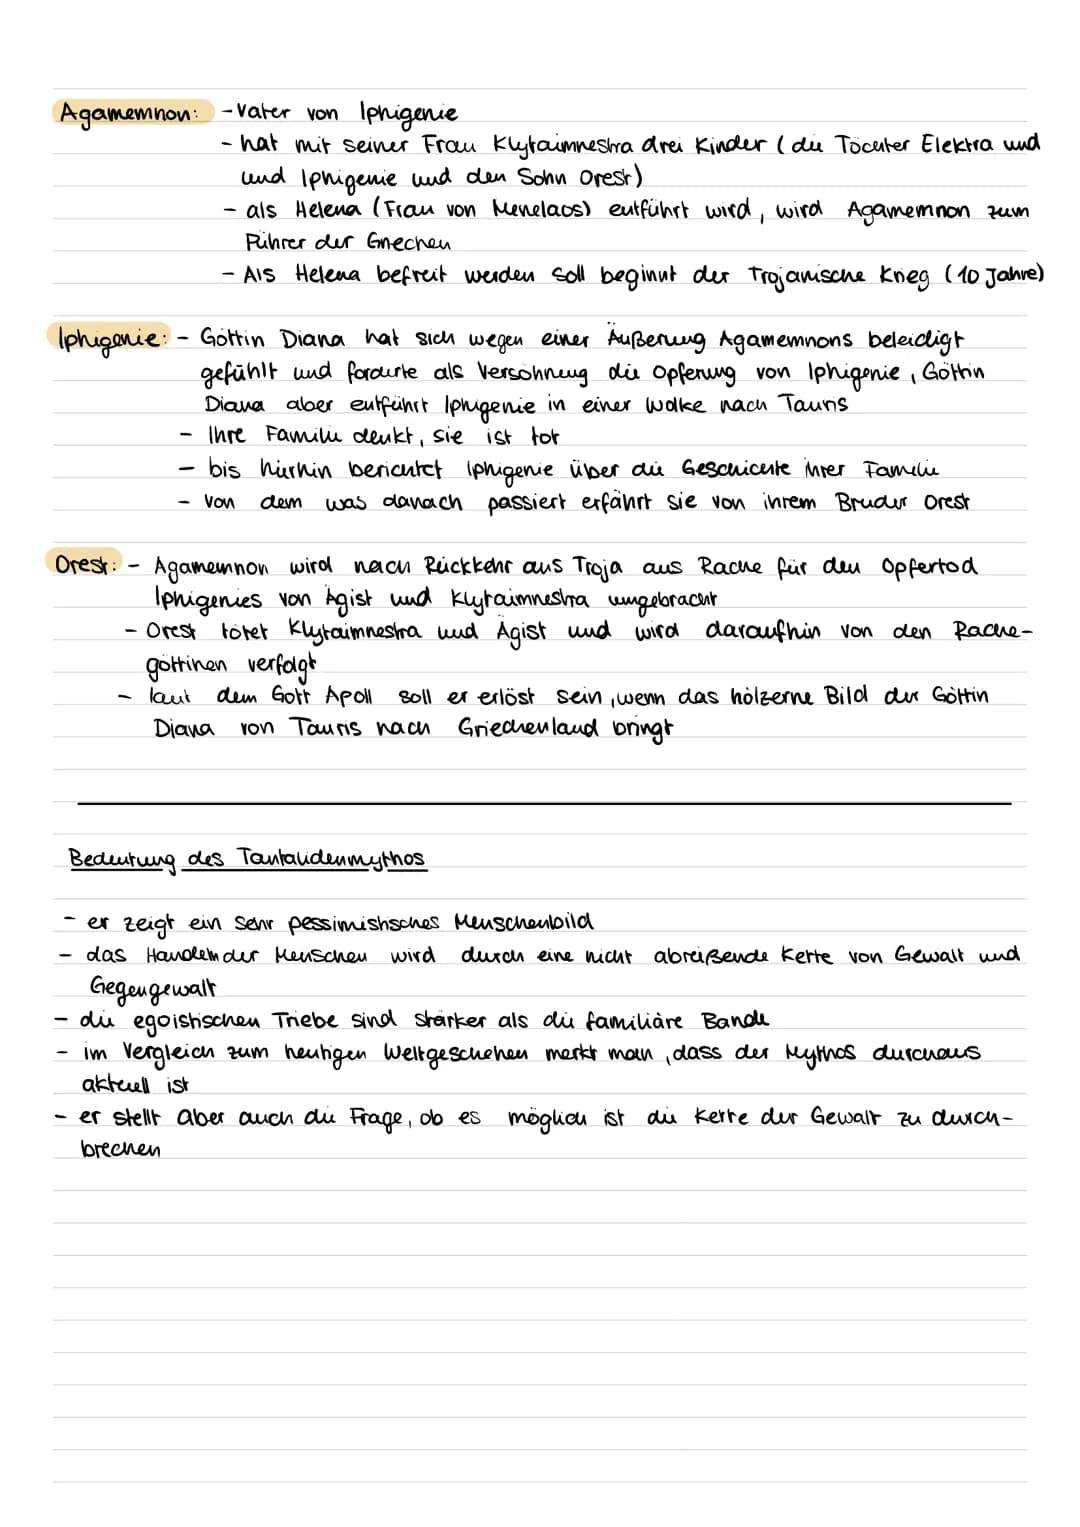 Agamemnon: - Vater von Iphigenie
- hat mit seiner Frau Klytaimnestra drei Kinder (die Töchter Elektra und
und Iphigenie und den Sohn Orest)
- als Helena (Frau von Menelaos) entführt wird, wird Agamemnon zum
Führer der Griechen
- Als Helena befreit werden soll beginnt der Trojanische Krieg (10 Jahre)
Iphigenie: - Göttin Diana hat sich wegen einer Äußerung Agamemnons beleidigt
gefühlt und forderte als Versöhnung die Opferung von Iphigenie, Göttin
Diana aber entführt Iphigenie in einer Wolke nach Tauris
- Ihre Familie denkt, sie ist tot
- bis hierhin berichtet Iphigenie über die Geschichte ihrer Familie
- Von dem was danach passiert erfährt sie von ihrem Bruder Orest
Orest: - Agamemnon wird nach Rückkehr aus Troja aus Rache für den Opfertod
Iphigenies von Ägist und Klytaimnestra umgebracht
- Orest tötet Klytaimnestra und Ägist und wird daraufhin von den Rache-
göttinen verfolgt
- laut dem Gott Apoll soll er erlöst sein, wenn das hölzerne Bild der Göttin
Diana von Tauris nach Griechenland bringt
Bedeutung des Tantalidenmythos
- er zeigt ein sehr pessimistisches Menschenbild
- das Handeln der Menschen wird durch eine nicht abreißende Kette von Gewalt und
Gegengewalt
- die egoistischen Triebe sind stärker als die familiäre Bande
- im Vergleich zum heutigen Weltgeschehen merkt man, dass der Mythos durchaus
aktuell ist
- er stellt aber auch die Frage, ob es möglich ist die Kette der Gewalt zu durch-
brechen